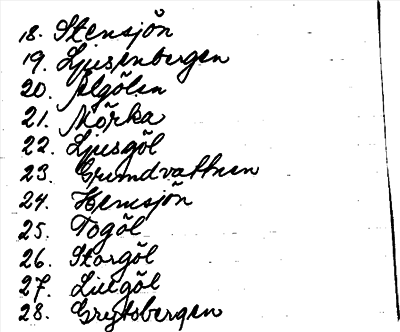 18. Stensjön
19. Ljusenbergen
20. Älgölen
21. Mörka
22. Ljusgöl
23. Grundvattnen
24. Hemsjön
25. Togöl
26. Storgöl
27. Lillgöl
28. Grytsbergen